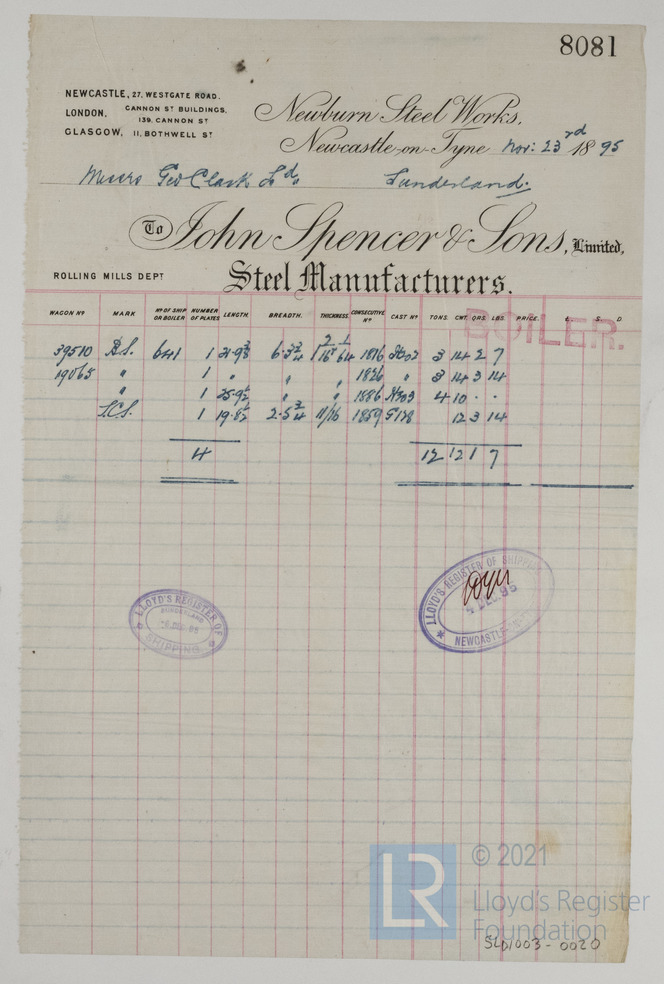 8081
NEWCASTLE, 27, WESTGATE ROAD.
LONDON. CANNON ST BUILDINGS, 139, CANNON ST
GLASGOW, 11, BOTHWELL ST
Newburn Steel Works,
Newcastle-on-Tyne Nov: 23rd 1895
Messrs Geo Clark Ld, Sunderland.
To John Spencer & Sons, Limited,
ROLLING MILLS DEPT Steel Manufacturers.
BOILER.
WAGON No MARK No OF SHIP OR BOILER NUMBER OF PLATES LENGTH. BREADTH. THICKNESS. CONSECUTIVE No CAST No TONS. CWT. QRS. LBS PRICE. £. S. D
39510 B.S. 641 1 6·3¾ 1816 3 14 2 7
19065 " 1 " " " 1826 " 3 14 3 14
" 1 " " 1886 4 10 · ·
S.C.S. 1 2·5¾ 11/16 1859 12 3 14
4 12 12 1 7
LLOYD'S REGISTER OF SHIPPING
SUNDERLAND
LLOYD'S REGISTER OF SHIPPING
DEC 95
NEWCASTLE
LR
© 2021
Lloyd's Register
Foundation
SLD1003-0020